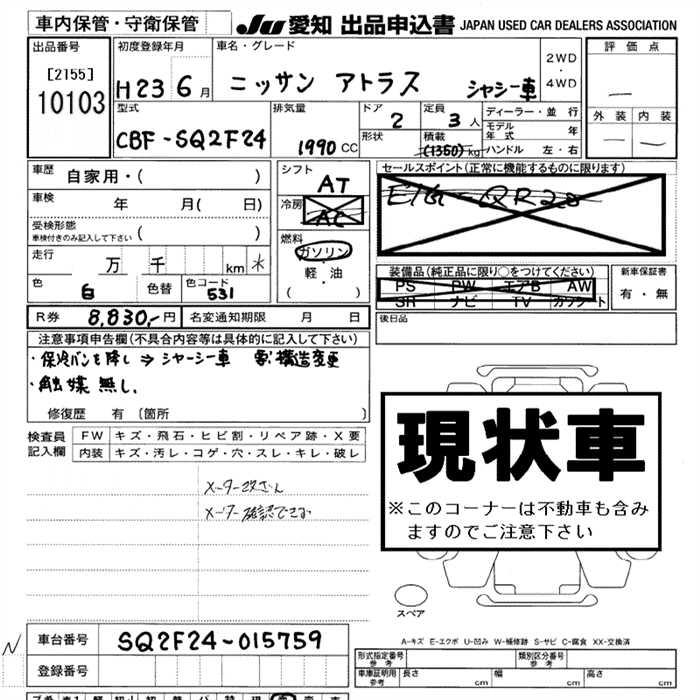 車内保管・守衛保管
JU 愛知 出品申込書 JAPAN USED CAR DEALERS ASSOCIATION
出品番号
[2155]
10103
初度登録年月
H23 6月
車名・グレード
ニッサン アトラス シャシー車
2WD
・
4WD
評価点
外装 内装
型式
CBF-SQ2F24
排気量
1990 CC
ドア
2
形状
定員
3人
積載
(1350)kg
ディーラー・並行
モデル年式 年
ハンドル 左・右
車歴 自家用・( )
車検 年 月( 日)
受検形態
車検付きのみ記入して下さい ( )
走行 万 千 km
色
白
色替
色コード
531
シフト
AT
冷房
AC
燃料
ガソリン
・
軽・油
( )
セールスポイント(正常に機能するものに限ります)
E/G QR20
装備品(純正品に限り○をつけてください)
PS PW エアB AW
SR ナビ TV カワシート
新車保証書
有・無
R券 8,830,-円 名変通知期限 月 日
後日品
注意事項申告欄(不具合内容等は具体的に記入して下さい)
・保冷バンを降し⇒シャーシー車 要構造変更
・触媒無し.
修復歴 有 〔箇所 〕
検査員
記入欄
FW キズ・飛石・ヒビ割・リペア跡・X要
内装 キズ・汚レ・コゲ・穴・スレ・キレ・破レ
メーター改ざん
メーター確認できず
現状車
※このコーナーは不動車も含み
ますのでご注意下さい
スペア
A-キズ E-エクボ U-凹み W-補修跡 S-サビ C-腐食 XX-交換済
N
車台番号 SQ2F24-015759
登録番号
形式指定番号
参考
類別区分番号
参考
車庫証明用
参考
長さ cm 幅 cm 高さ cm